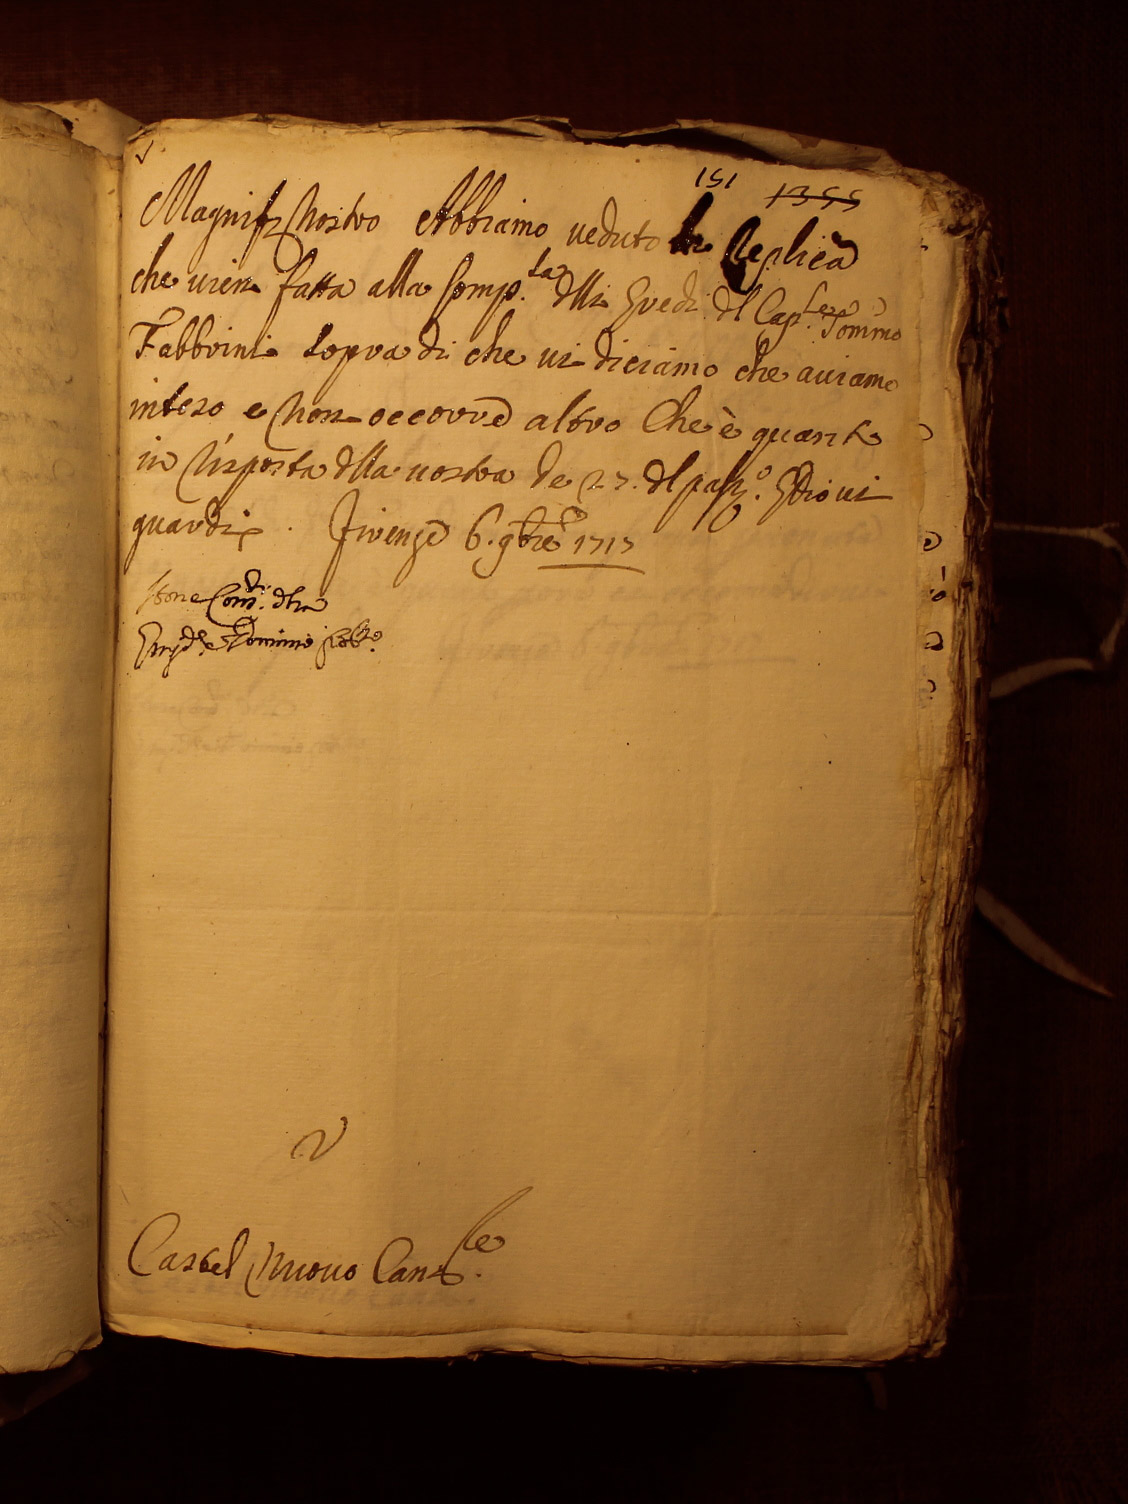 151 1355
Magnif.co Nostro Abbiamo veduto la Replica
che vien fatta alla Comp.ta dlli Eredi dl Cap. Tommo
Fabbrini sopra di che vi diciamo che aviamo
inteso e non occorre altro che è quanto
in risposta dlla vostra de 27. dl pass.o Iddio vi
guardi. Firenze 6. 9bre 1717
Castel nuovo Canc.le